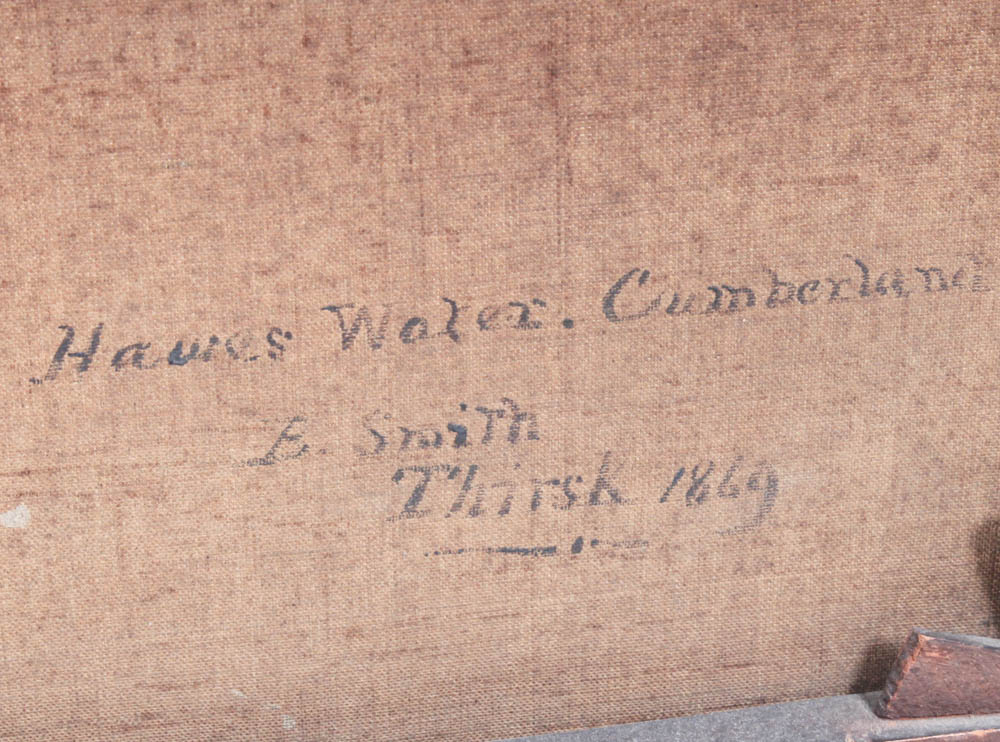 Hawes Water. Cumberland
E. Smith
Thirsk 1869